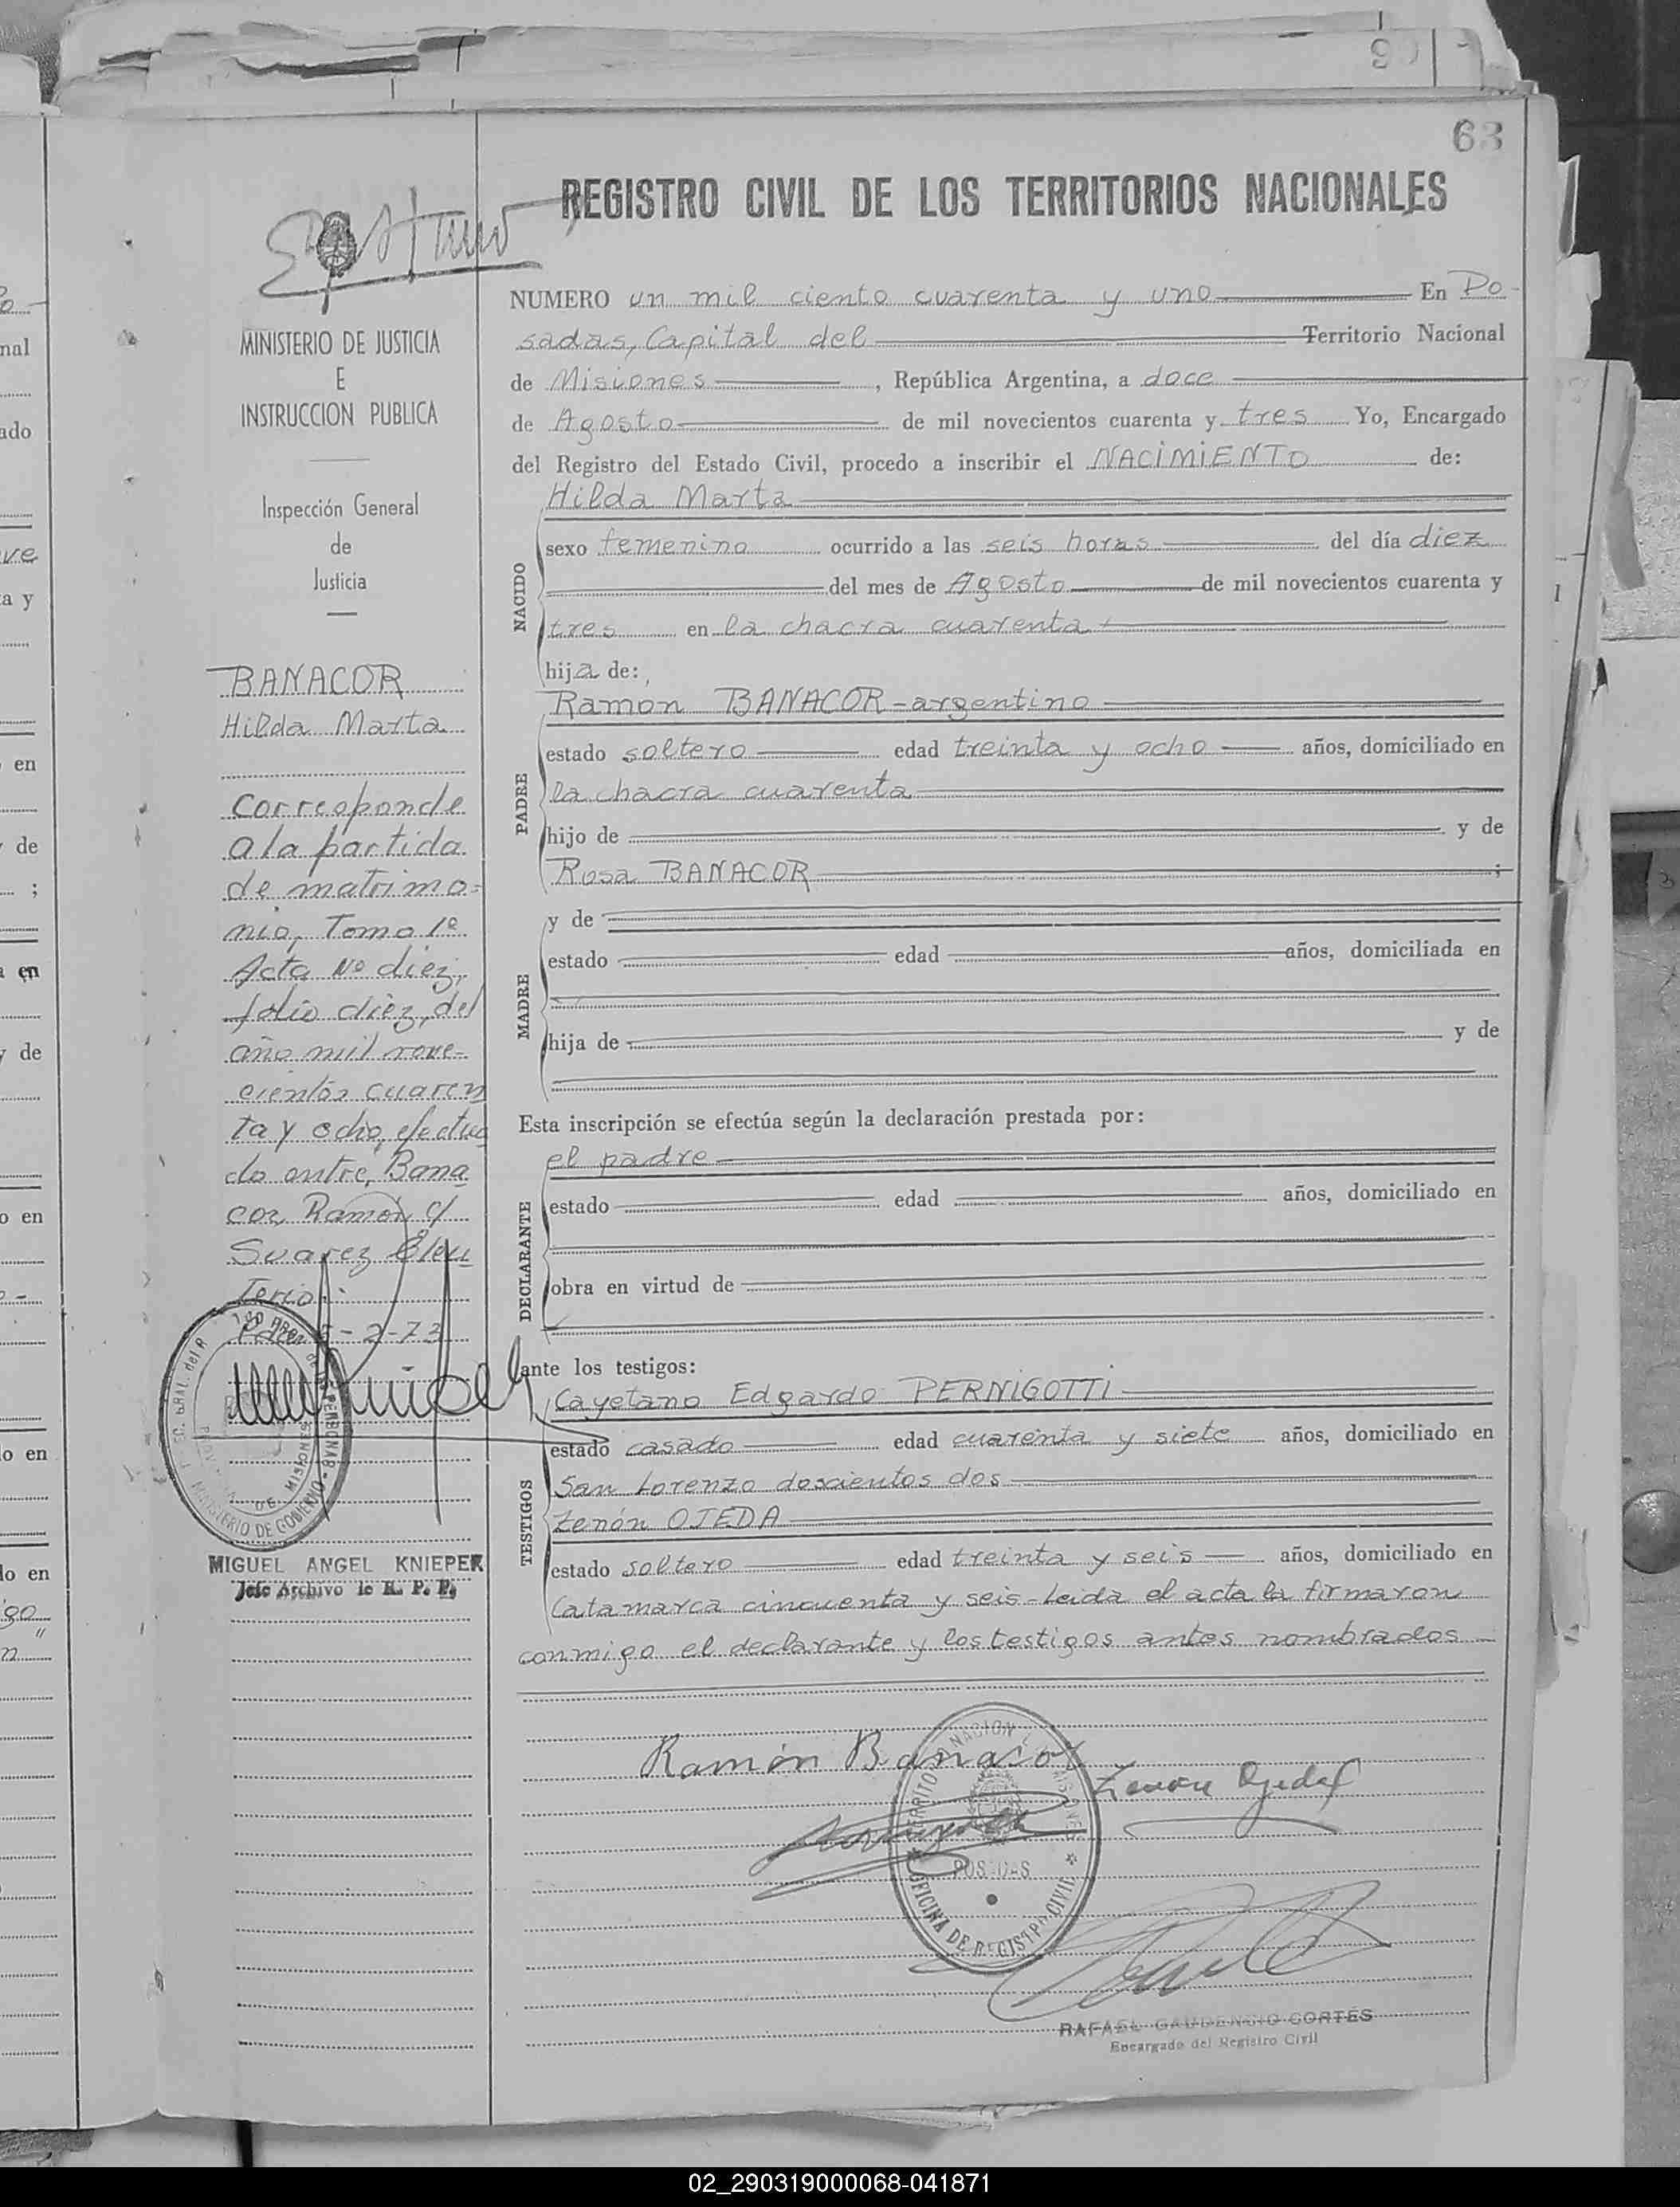 63
REGISTRO CIVIL DE LOS TERRITORIOS NACIONALES
MINISTERIO DE JUSTICIA
E
INSTRUCCION PUBLICA
Inspección General
de
Justicia
BANACOR
Hilda Marta
Corresponde
a la partida
de matrimo=
nio, Tomo 1º
Acta Nº diez,
folio diez, del
año mil nove-
cientos cuaren
ta y ocho, efectua
do entre, Bana
cor Ramón c/
Suarez Eleu
terio.
5-2-73
MIGUEL ANGEL KNIEPER
Jefe Archivo de R. P. P.
NUMERO un mil ciento cuarenta y uno En Po-
sadas, Capital del Territorio Nacional
de Misiones, República Argentina, a doce
de Agosto de mil novecientos cuarenta y tres Yo, Encargado
del Registro del Estado Civil, procedo a inscribir el NACIMIENTO de:
NACIDO
Hilda Marta
sexo femenino ocurrido a las seis horas del día diez
del mes de Agosto de mil novecientos cuarenta y
tres en la chacra cuarenta
hija de:
PADRE
Ramon BANACOR-argentino
estado soltero edad treinta y ocho años, domiciliado en
la chacra cuarenta
hijo de y de
Rosa BANACOR ;
MADRE
y de
estado edad años, domiciliada en
hija de y de
Esta inscripción se efectúa según la declaración prestada por:
DECLARANTE
el padre
estado edad años, domiciliado en
obra en virtud de
ante los testigos:
TESTIGOS
Cayetano Edgardo PERNIGOTTI
estado casado edad cuarenta y siete años, domiciliado en
San Lorenzo doscientos dos
Zenón OJEDA
estado soltero edad treinta y seis años, domiciliado en
Catamarca cincuenta y seis-Leida el acta la firmaron
conmigo el declarante y los testigos antes nombrados
Ramón Banacor
Zenon Ojeda
POSADAS
OFICINA DE REGISTRO CIVIL
RAFAEL GAUDENCIO CORTÉS
Encargado del Registro Civil
02_290319000068-041871